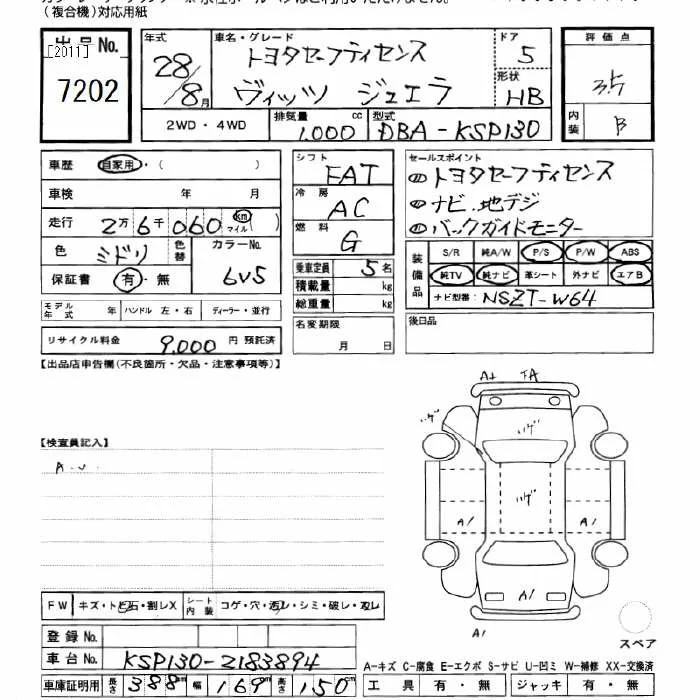 (複合機)対応用紙
出品No.
[2011]
7202
年式
28/8月
車名・グレード
トヨタセーフティセンス
ヴィッツ ジュエラ
ドア
5
形状
HB
評価点
3.5
内装
B
2WD・4WD
排気量
1,000 cc
型式
DBA-KSP130
車歴 自家用・( )
車検 年 月
走行 2万6千060 km マイル ( )
色 ミドリ
色替
カラーNo.
6V5
保証書 有・無
モデル年式 年 ハンドル 左・右 ディーラー・並行
リサイクル料金 9,000 円 預託済
シフト
FAT
冷房
AC
燃料
G
乗車定員 5 名
積載量 kg
総重量 kg
名変期限
月 日
セールスポイント
トヨタセーフティセンス
ナビ.地デジ
バックガイドモニター
装備品
S/R 純A/W P/S P/W ABS
純TV 純ナビ 革シート 外ナビ エアB
ナビ型番: NSZT-W64
後日品
【出品店申告欄(不良箇所・欠品・注意事項等)】
【検査員記入】
A1
A1
A1
A1
A1
FW キズ・トビ石・割レX シート内装 コゲ・穴・汚レ・シミ・破レ・スレ
登録No.
車台No. KSP130-2183894
車庫証明用 長さ 388 cm 幅 169 cm 高さ 150 cm
スペア
A-キズ C-腐食 E-エクボ S-サビ U-凹ミ W-補修 XX-交換済
工具 有・無 ジャッキ 有・無